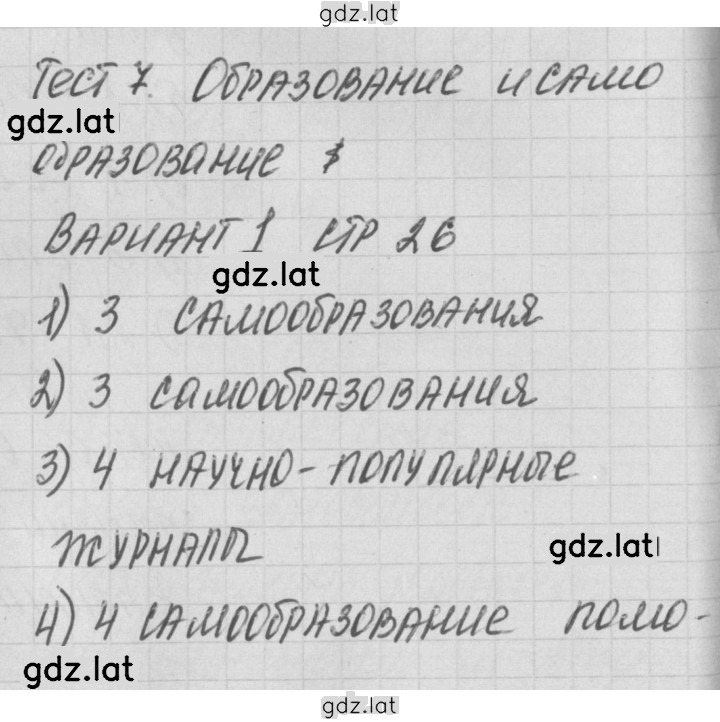 gdz.lat
Тест 7. Образование и само
gdz.lat
образование
Вариант 1 стр 26
gdz.lat
1) 3 самообразования
2) 3 самообразования
3) 4 научно-популярные
журналы
gdz.lat
4) 4 самообразование помо-
gdz.lat
gdz.lat